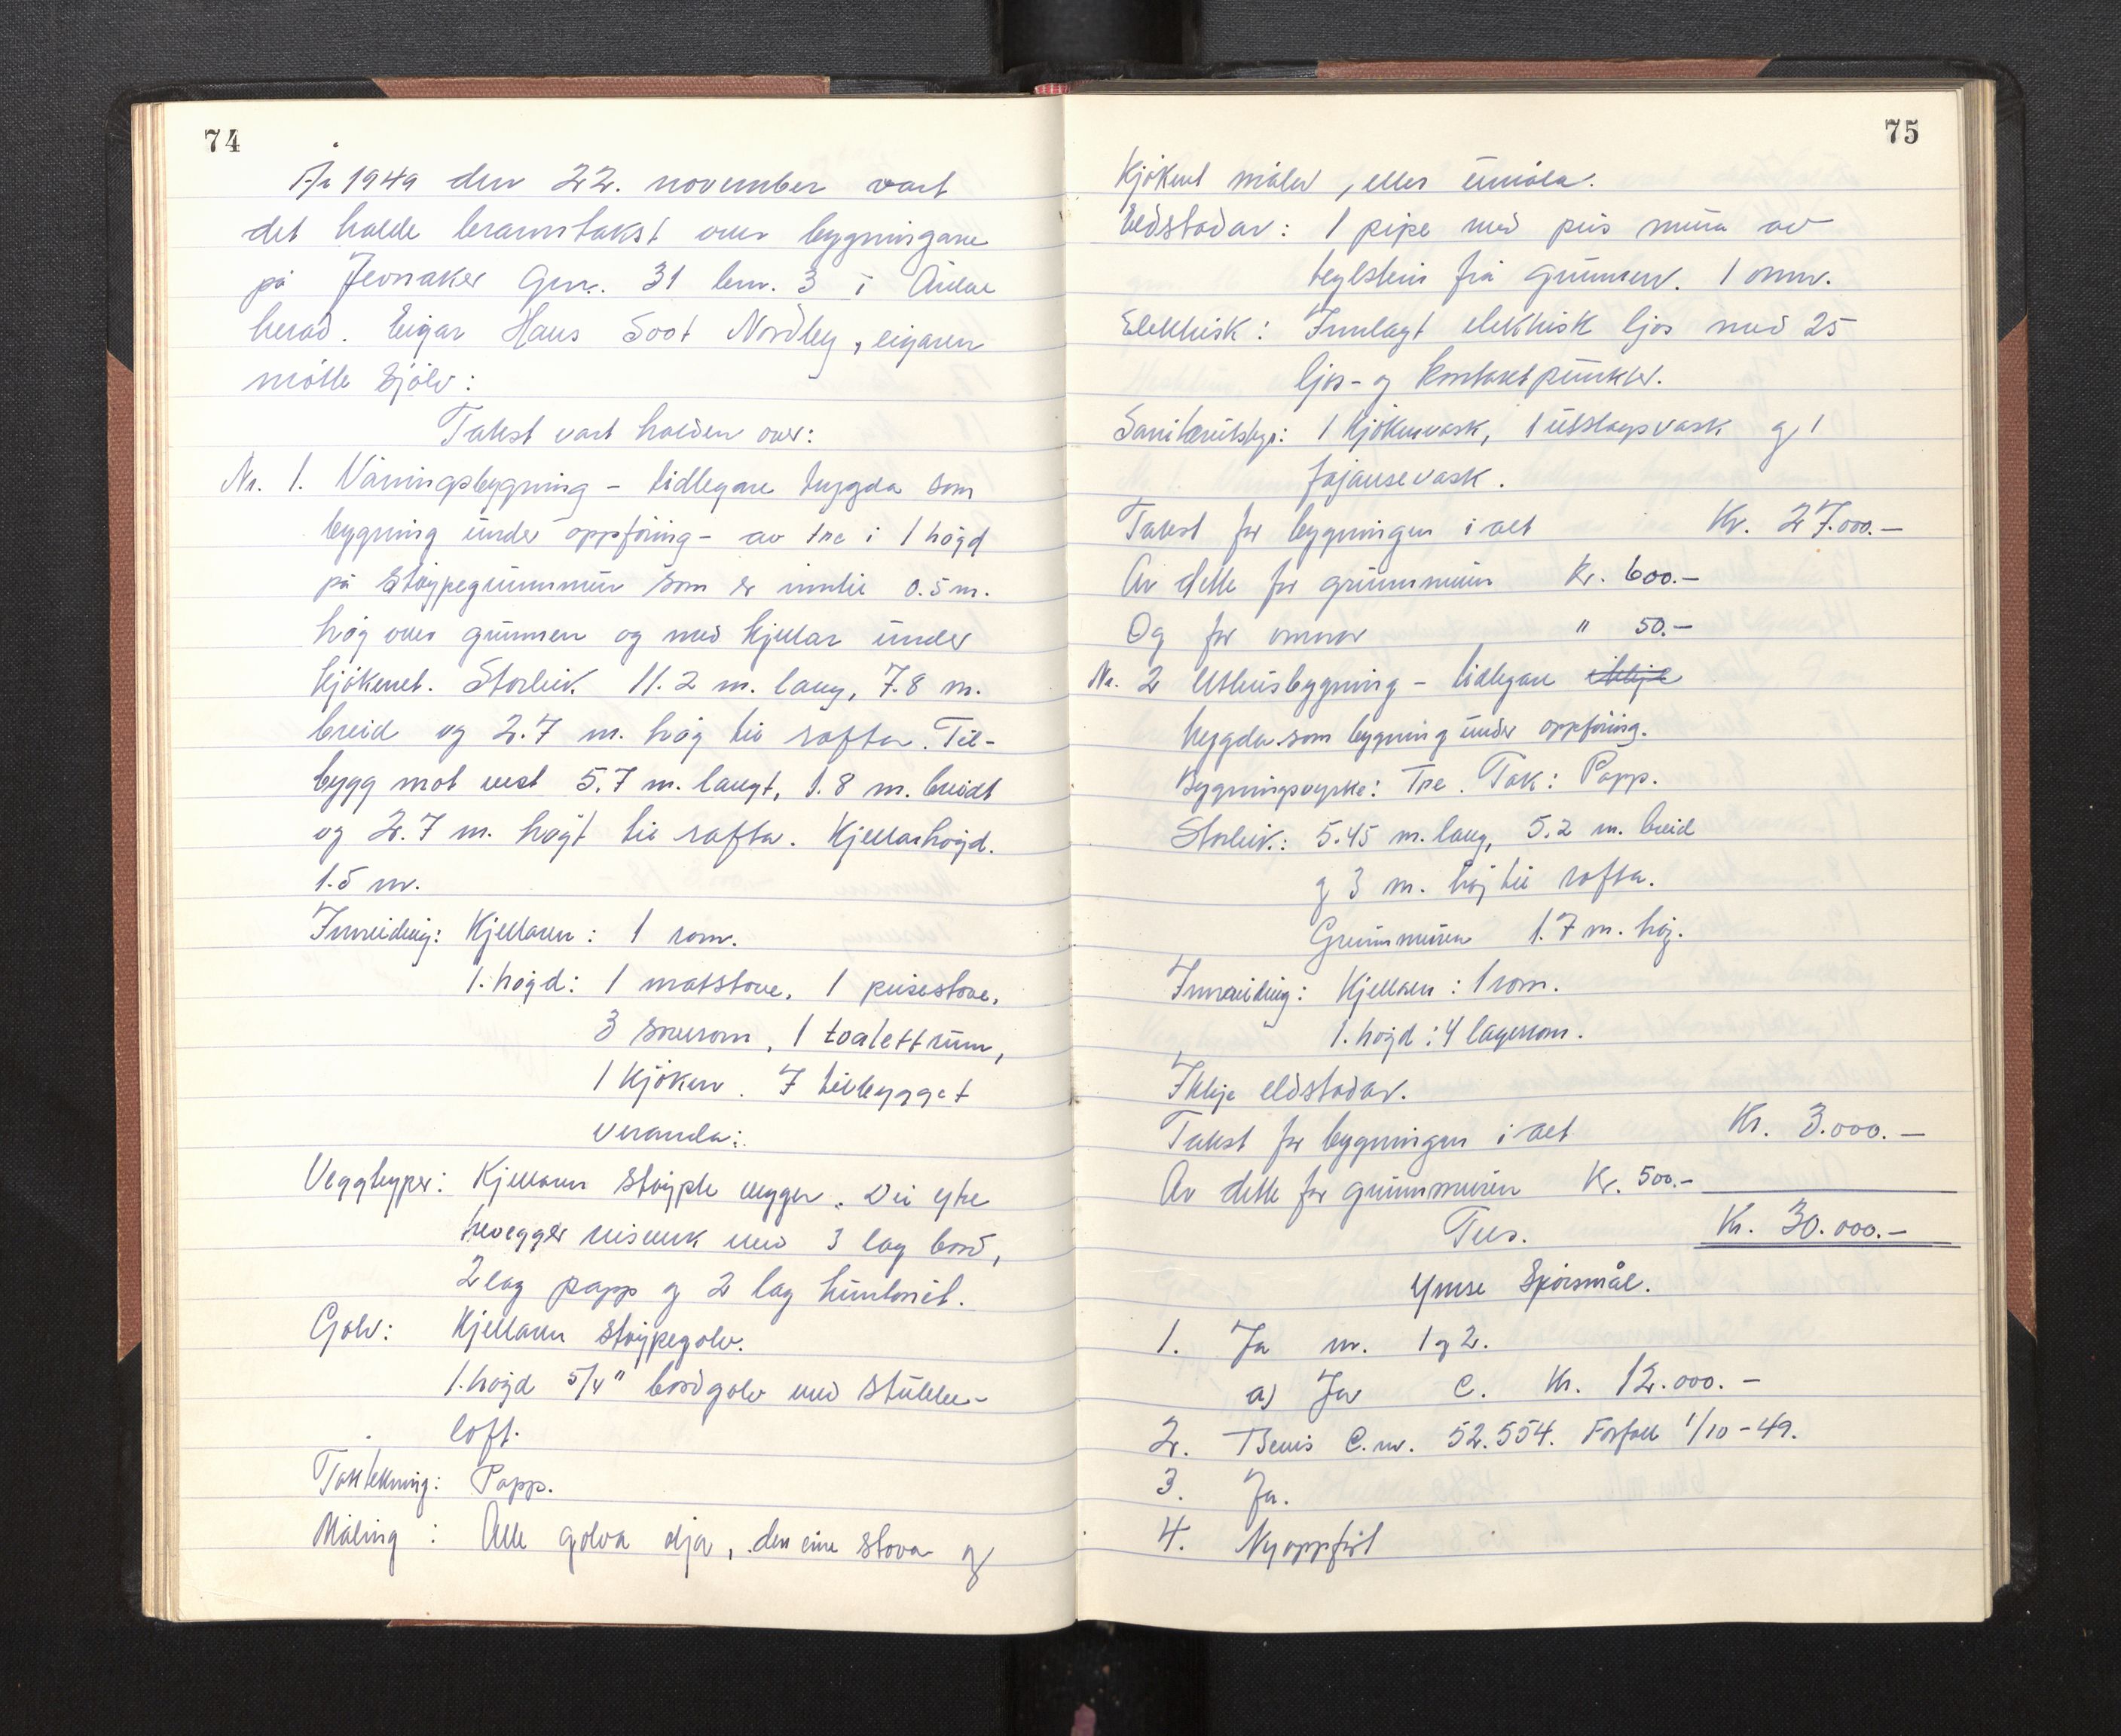 74
År 1949 den 22. november vart
det halde branntakst over bygningane
på Jevnaker Gnr. 31 bnr. 3 i
herad. Eigar Hans Soot Nordby, eigaren
møtte sjølv:
Takst vart halden over:
Nr. 1. Våningsbygning - tidlegare trygda som
bygning under oppføring - av tre i 1 høgd
på støypegrunnmur som er inntil 0.5 m.
høg over grunnen og med kjellar under
kjøkenet. Storleik 11.2 m. lang, 7.8 m.
breid og 2.7 m. høg til rafta. Til-
bygg mot vest 5.7 m. langt, 1.8 m. breidt
og 2.7 m. høgt til rafta. Kjellarhøgd.
1.5 m.
Innreiding: Kjellaren: 1 rom.
1. høgd: 1 matstove, 1 peisestove,
3 soverom, 1 toalettrum,
1 kjøken. I tilbygget
veranda.
Veggtyper: Kjellaren støypte vegger. Dei ytre
trevegger reisverk med 3 lag bord,
2 lag papp og 2 lag huntonit.
Golv: Kjellaren støypegolv.
1. høgd 5/4" bordgolv med stubbe-
loft.
Taktekning: Papp.
Måling: Alle golva olja, den eine stova og
75
Kjøkenet måla, elles umåla.
Eldstadar: 1 pipe med peis mura av
teglstein frå grunnen. 1 omn.
Elektrisk: Innlagt elektrisk ljos med 25
ljos- og kontaktpunkter.
Sanitærutstyr: 1 kjøkenvask, 1 utslagsvask og 1
fajansevask.
Takst for bygningen i alt Kr. 27.000.-
Av dette for grunnmuren Kr. 600.-
Og for omnar " 50.-
Nr. 2 Uthusbygning - tidlegare ikkje
trygda som bygning under oppføring.
Bygningsvyrke: Tre. Tak: Papp.
Storleik: 5.45 m. lang, 5.2 m. breid
og 3 m. høg til rafta.
Grunnmuren 1.7 m. høg.
Innreiding: Kjellaren: 1 rom.
1. høgd: 4 lagerrom.
Ikkje eldstadar.
Takst for bygningen i alt Kr. 3.000.-
Av dette for grunnmuren Kr. 500.-
Tils. Kr. 30.000.-
Ymse Spørsmål.
1. Ja nr. 1 og 2.
a) Ja C. Kr. 12.000.-
2. Bevis C. nr. 52.554. Forfall 1/10-49.
3. Ja.
4. Nyoppført